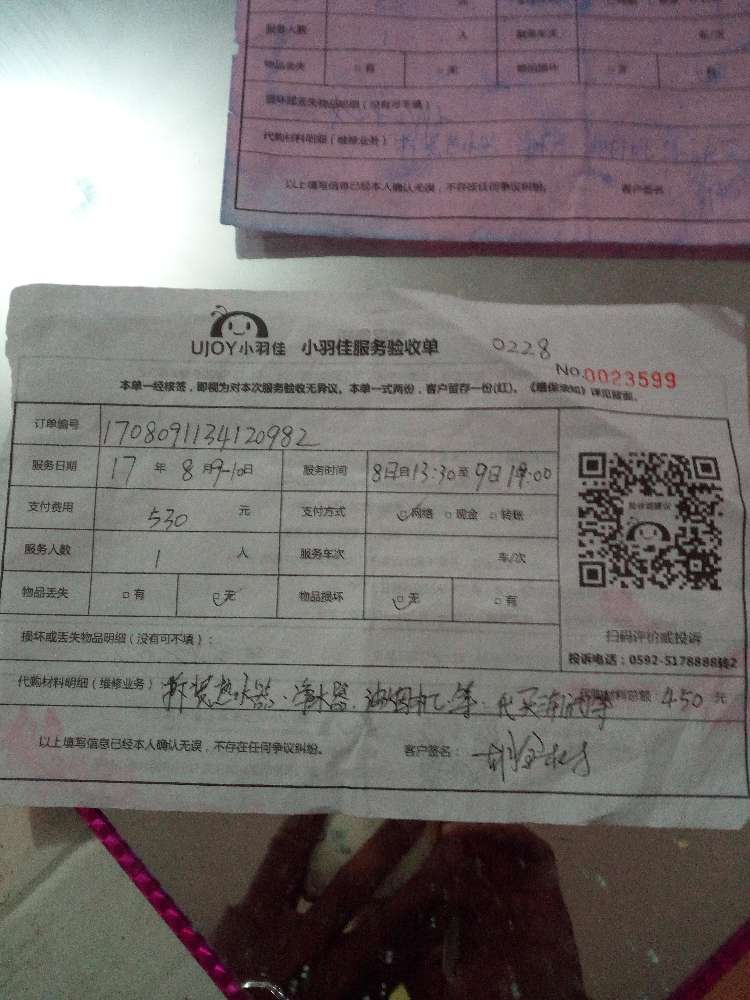 服务人数 1 人 服务车次 车/次
物品丢失 □有 □无 物品损坏 □无 □有
损坏或丢失物品明细（没有可不填）
代购材料明细（维修业务）
以上填写信息已经本人确认无误，不存在任何争议纠纷。 客户签名
UJOY小羽佳 小羽佳服务验收单 0228
No.0023599
本单一经核签，即视为对本次服务验收无异议。本单一式两份，客户留存一份(红)。《维保须知》详见背面。
订单编号 1708091134120982
服务日期 17年8月9-10日 服务时间 8日自13:30至9日19:00
支付费用 530 元 支付方式 □网络 □现金 □转账
服务人数 1 人 服务车次 车/次
物品丢失 □有 □无 物品损坏 □无 □有
扫码评价或投诉
损坏或丢失物品明细（没有可不填）：
投诉电话：0592-5178888转2
代购材料明细（维修业务） 拆装热水器、净水器、油烟机等 代买 材料总额：450元
以上填写信息已经本人确认无误，不存在任何争议纠纷。 客户签名：